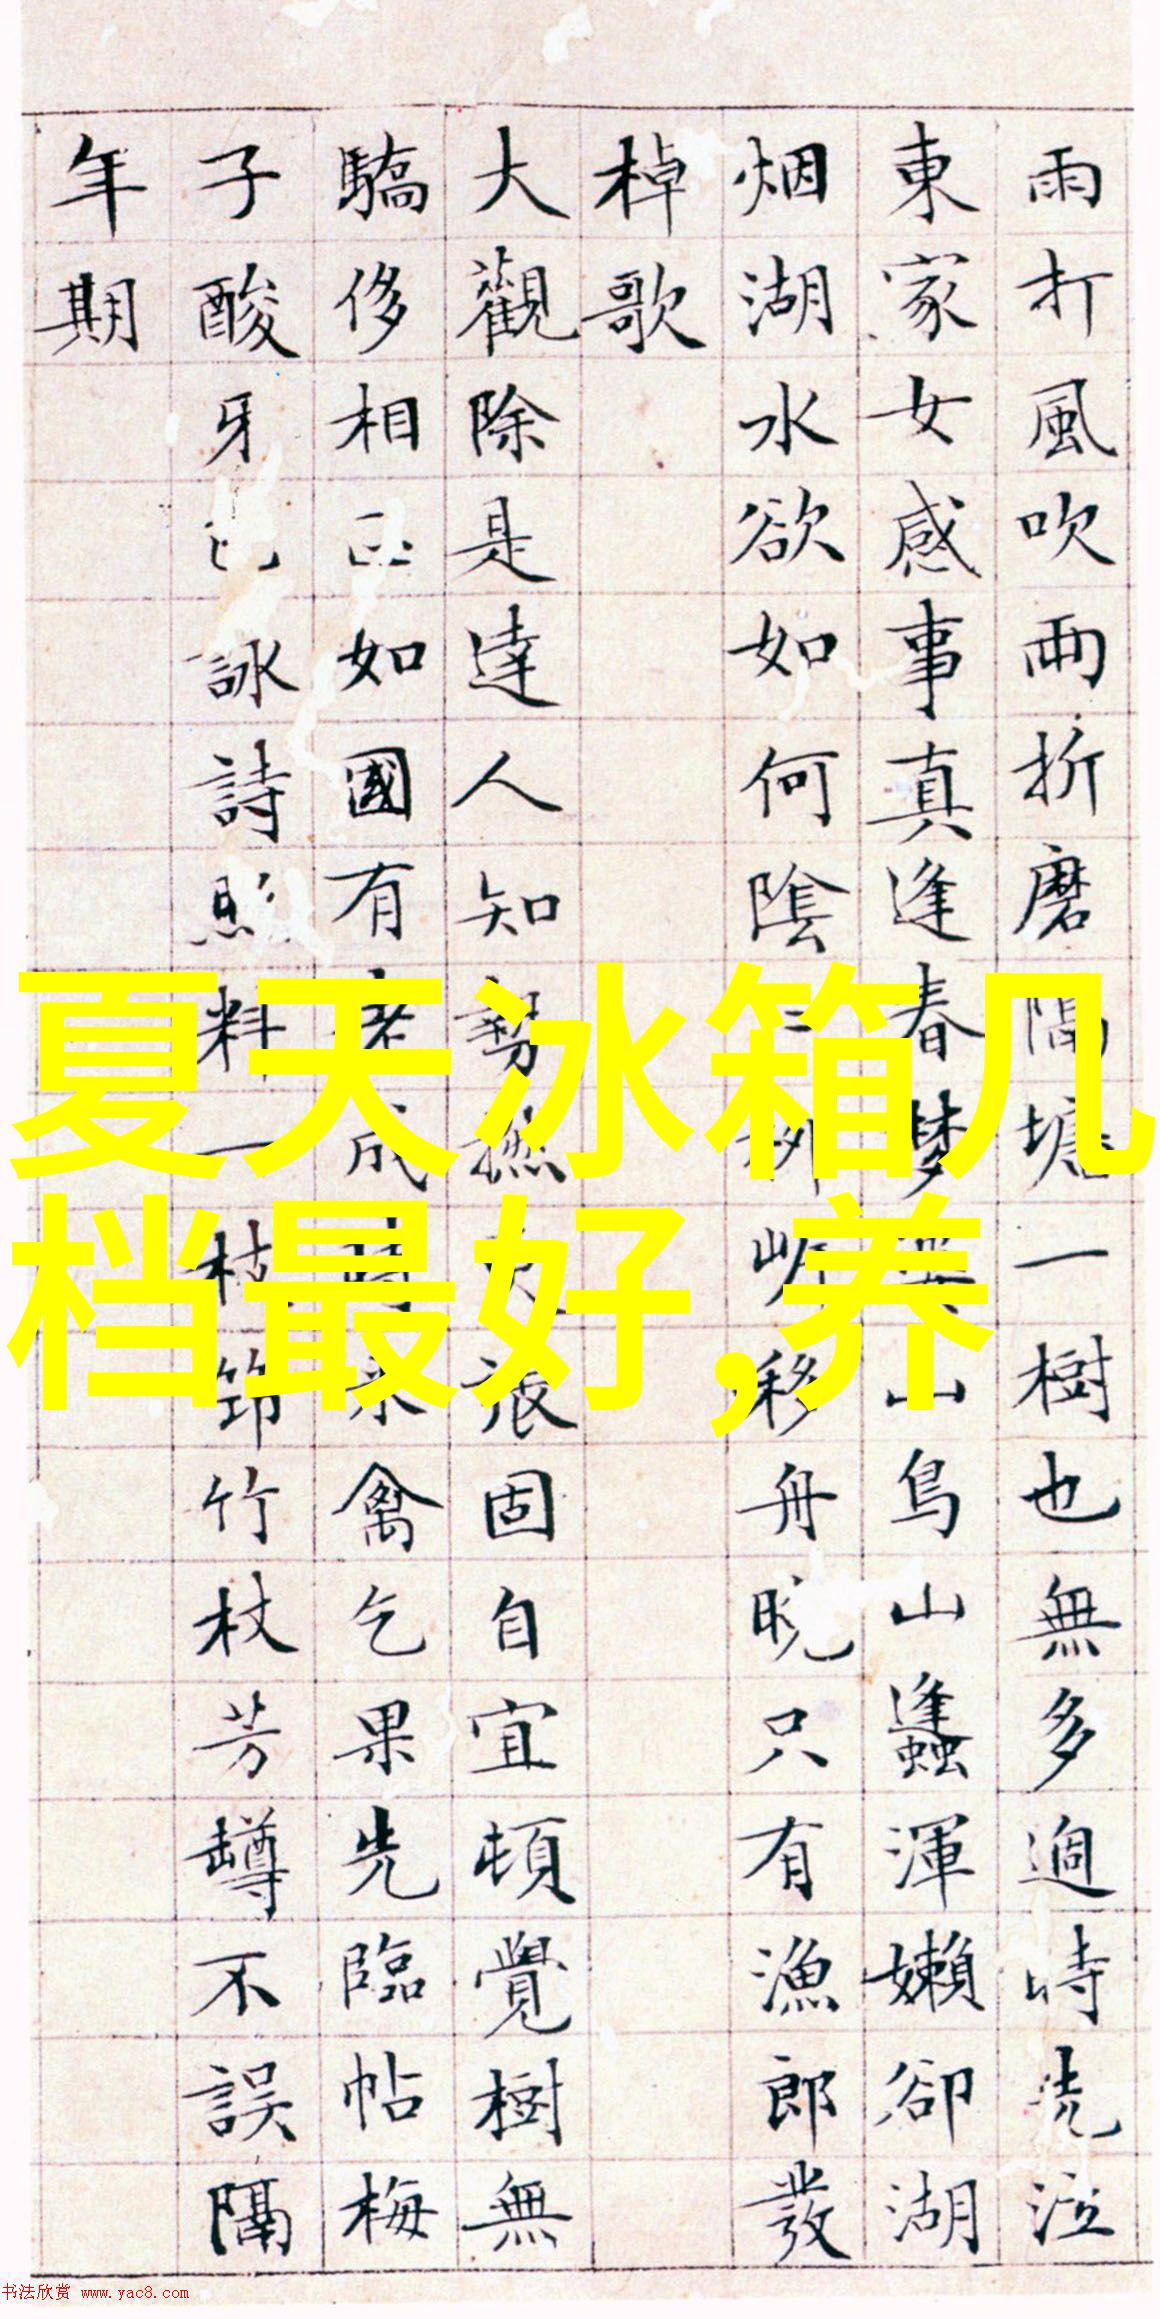 雨打風吹雨折磨隔塘一樹也無多過時洗泣
東家女感事真逢春夢山鳥山蠭渾嬾卻湖
烟湖水欲如何陰移舟晚只有漁郎發
棹歌
大觀除是達人知張固自宜頓覺樹無
驕侈相如國有老成禽乞果先臨帖梅
子酸牙詠詩料一枯節竹杖芳罇不誤隔
年期
夏天冰箱几
档最好,养
书法欣赏 www.yac8.com